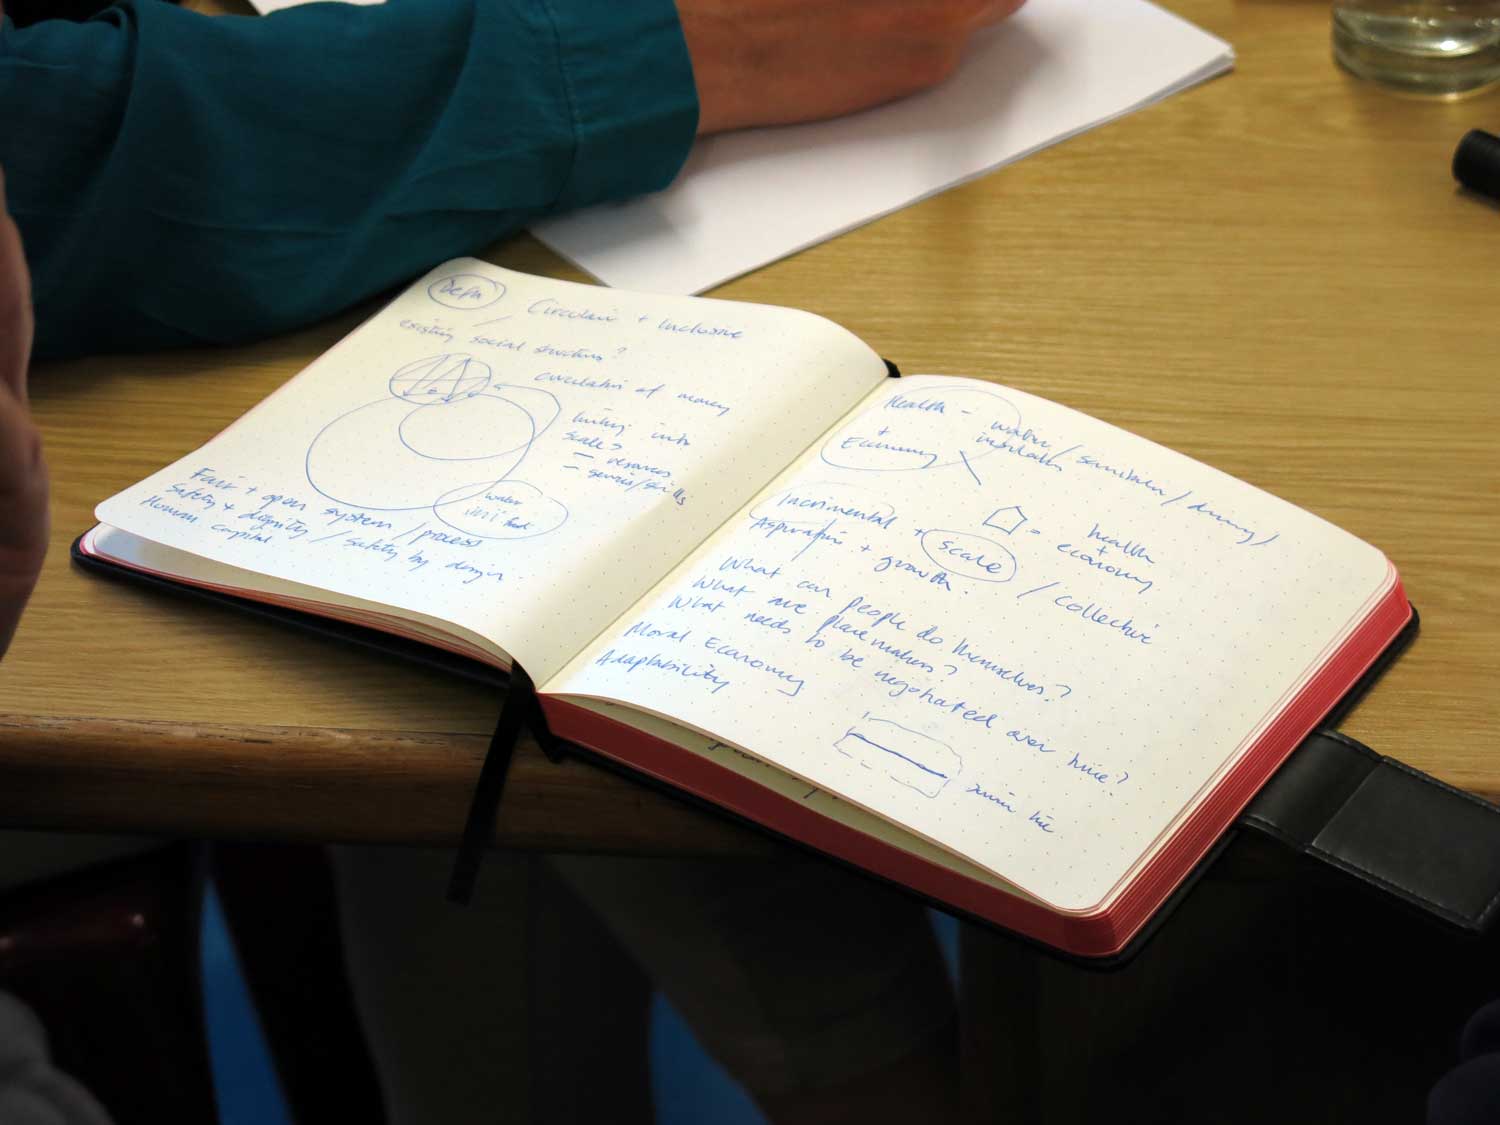 Defn
Circular + Inclusive
existing social structures?
circulation of money
linking into
scales
- resources
- services/skills
water
food
Fair + open system / process
Safety + dignity / safety by design
Human capital
Health - water / sanitation /
+
Economy
Incrimental + scale / collective
= health
+
economy
Aspiration + growth
What can people do themselves?
What are placemakers?
What needs to be negotiated over time?
Moral Economy
Adaptability